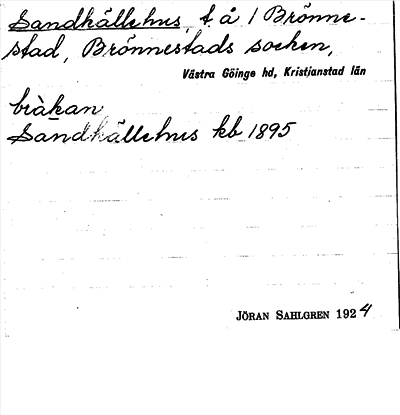 Sandhällehus, t. å 1 Brönne-
stad, Brönnestads socken,
Västra Göinge hd, Kristianstad län
bràkan
Sandhällehus kb 1895
JÖRAN SAHLGREN 1924